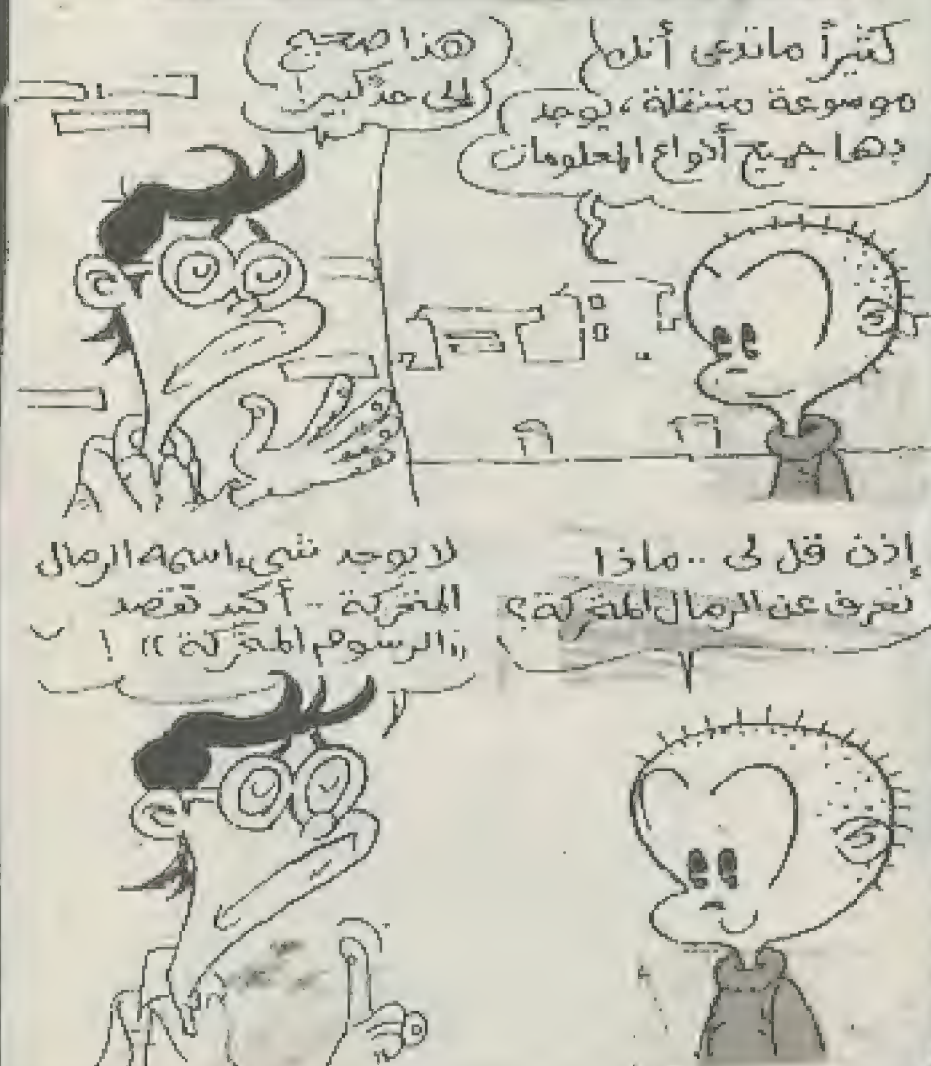 كثيراً ماتدعى أنك
موسوعة متنقلة، يوجد
بها جميع أنواع المعلومات
هذا صحيح
إلى حد كبير!
إذن قل لى .. ماذا
تعرف عن الرمال المتحركة؟
لا يوجد شىء اسمه الرمال
المتحركة .. أكيد تقصد
"الرسوم المتحركة" !